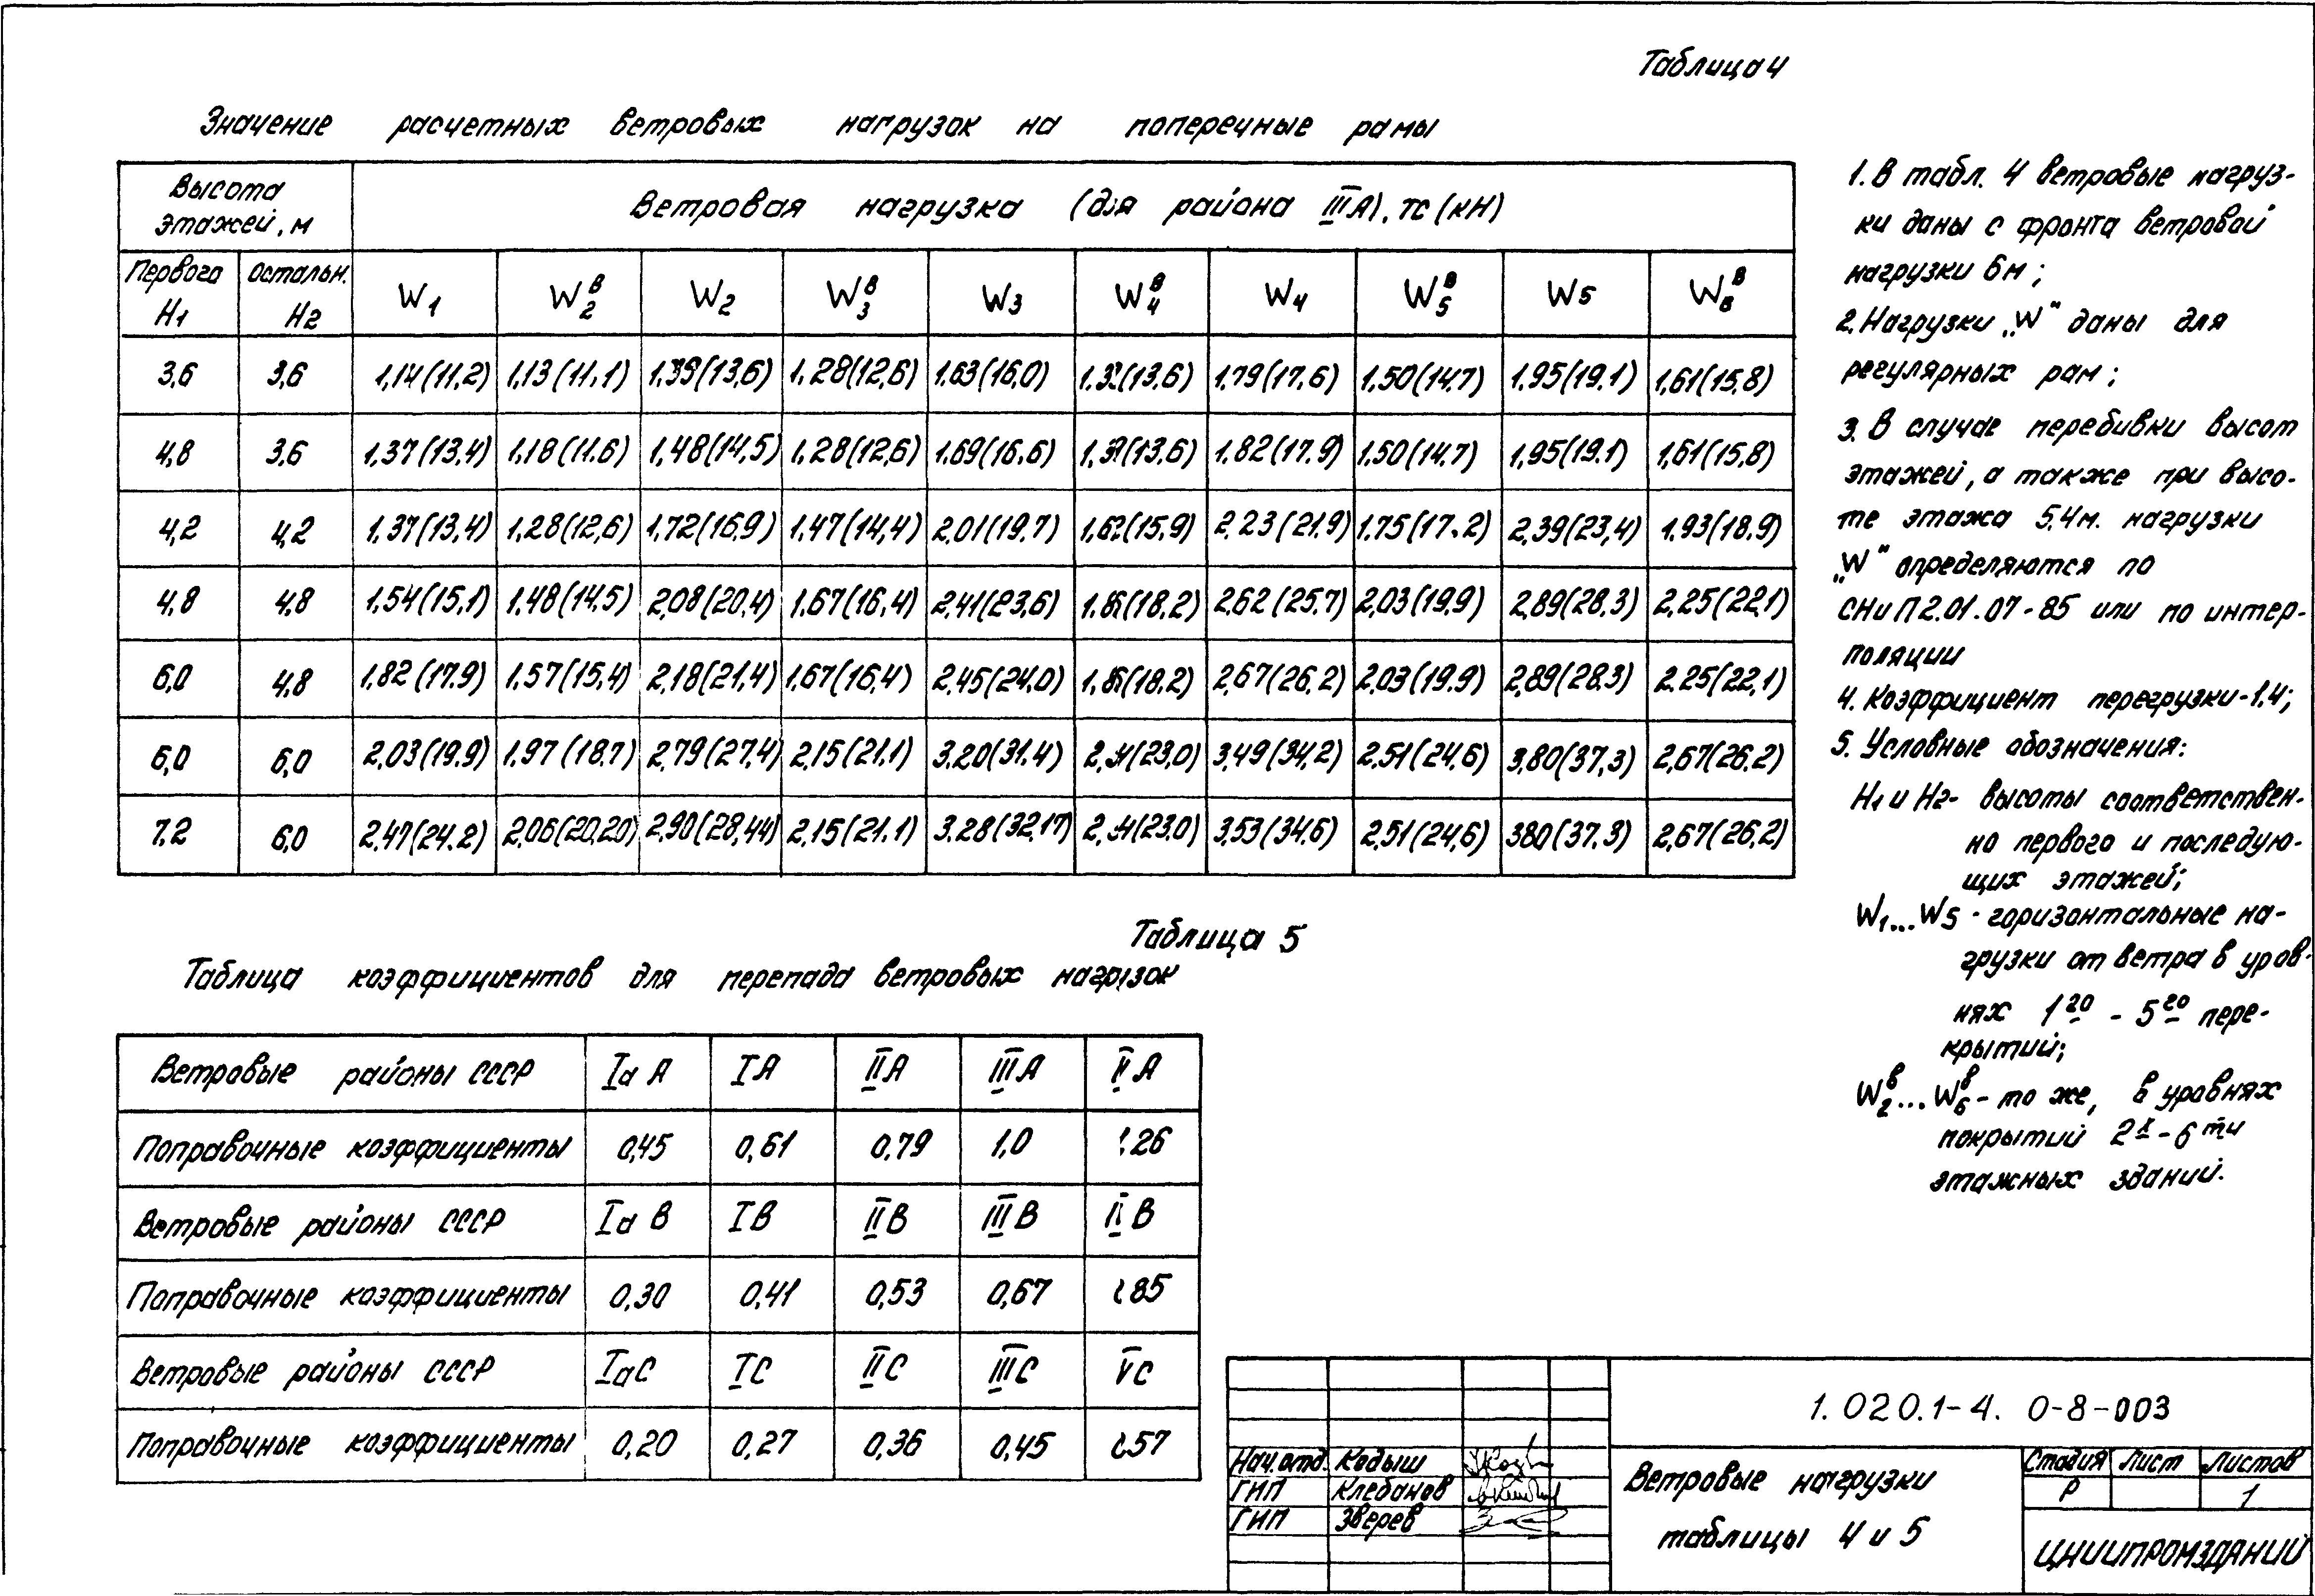 Таблица 4
Значение расчетных ветровых нагрузок на поперечные рамы
Высота этажей, м | Ветровая нагрузка (для района III А), тс (кН)
Первого H1 | Остальн. H2 | W1 | W2^В | W2 | W3^В | W3 | W4^В | W4 | W5^В | W5 | W6^В
3,6 | 3,6 | 1,14(11,2) | 1,13(11,1) | 1,39(13,6) | 1,28(12,6) | 1.63(16,0) | (13,6) | 1,79(17,6) | 1.50(14,7) | 1,95(19.1) | 1,61(15,8)
4,8 | 3,6 | 1.37(13,4) | 1,18(11.6) | 1,48(14,5) | 1,28(12,6) | 1.69(16.6) | (13,6) | 1.82(17.9) | 1.50(14.7) | 1,95(19.1) | 1,61(15,8)
4,2 | 4,2 | 1,37(13,4) | 1,28(12,6) | 1,72(16,9) | 1,47(14,4) | 2,01(19.7) | 1,62(15,9) | 2,23(21.9) | 1.75(17.2) | 2,39(23,4) | 1.93(18.9)
4,8 | 4,8 | 1,54(15,1) | 1,48(14,5) | 2,08(20,4) | 1,67(16,4) | 2,41(23,6) | (18,2) | 2,62(25,7) | 2,03(19,9) | 2,89(28,3) | 2,25(22,1)
6,0 | 4,8 | 1,82(17.9) | 1,57(15,4) | 2,18(21,4) | 1,67(16,4) | 2,45(24,0) | (18,2) | 2,67(26,2) | 2,03(19.9) | 2,89(28,3) | 2.25(22,1)
6,0 | 6,0 | 2,03(19.9) | 1,97(18,7) | 2,79(27,4) | 2,15(21,1) | 3,20(31.4) | (23,0) | 3,49(34,2) | 2.51(24,6) | 3,80(37,3) | 2,67(26.2)
7,2 | 6,0 | 2,47(24.2) | 2,06(20,20) | 2,90(28,44) | 2,15(21.1) | 3.28(32,17) | (23,0) | 3,53(34,6) | 2,51(24,6) | 380(37.3) | 2,67(26,2)
Таблица 5
Таблица коэффициентов для перепада ветровых нагрузок
Ветровые районы СССР | Iа А | I А | II А | III А | А
Поправочные коэффициенты | 0,45 | 0,61 | 0,79 | 1,0 | 26
Ветровые районы СССР | Iа В | I В | II В | III В | В
Поправочные коэффициенты | 0,30 | 0,41 | 0,53 | 0,67 | 85
Ветровые районы СССР | Iа С | I С | II С | III С | С
Поправочные коэффициенты | 0,20 | 0,27 | 0,36 | 0,45 | 57
1. В табл. 4 ветровые нагруз-
ки даны с фронта ветровой
нагрузки 6м;
2. Нагрузки „W" даны для
регулярных рам;
3. В случае перебивки высот
этажей, а также при высо-
те этажа 5,4м. нагрузки
„W" определяются по
СНиП 2.01.07-85 или по интер-
поляции
4. Коэффициент перегрузки-1.4;
5. Условные обозначения:
H1 и H2- высоты соответствен-
но первого и последую-
щих этажей;
W1...W5 - горизонтальные на-
грузки от ветра в уров-
нях 1го - 5го пере-
крытий;
W2^В...W6^В - то же, в уровнях
покрытий 2х-6ти
этажных зданий.
1.020.1-4. 0-8-003
Нач.отд. Кодыш
ГИП Клебанов
ГИП Зверев
Ветровые нагрузки
таблицы 4 и 5
Стадия | Лист | Листов
Р | | 1
ЦНИИПРОМЗДАНИЙ